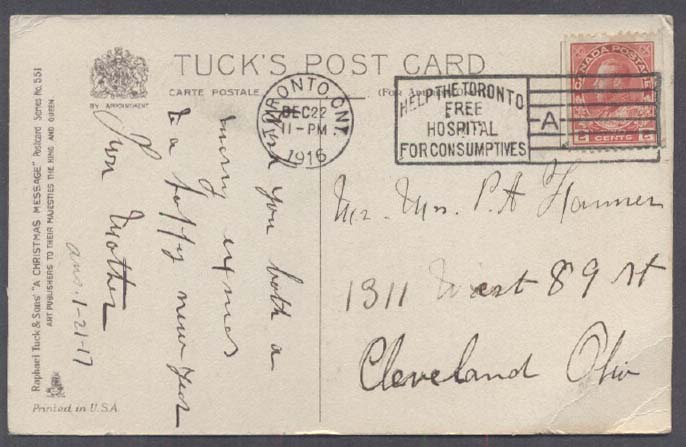 TUCK'S POST CARD
CARTE POSTALE
(For
BY APPOINTMENT
Raphael Tuck & Sons' "A CHRISTMAS MESSAGE" Postcard Series No. 551
ART PUBLISHERS TO THEIR MAJESTIES THE KING AND QUEEN.
Printed in U.S.A.
TORONTO, ONT
DEC 22
11-PM
1916
HELP THE TORONTO
FREE
HOSPITAL
FOR CONSUMPTIVES
A
CANADA POSTAGE
2 CENTS 2
Wish you both a
merry xmas
& a happy new year
Mother
ans. 1-21-17
Mr. Mrs. P.A
1311 West 89 St
Cleveland Ohio